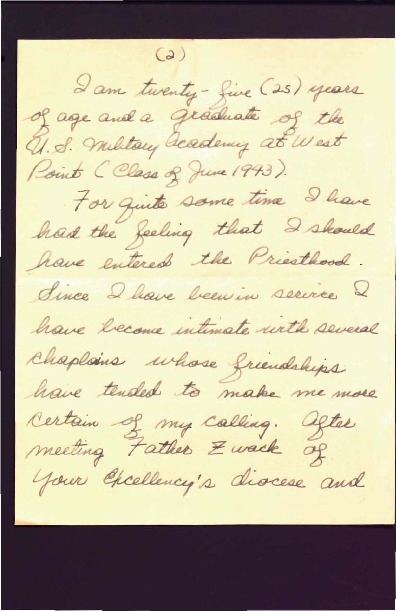 (2)
I am twenty-five (25) years
of age and a graduate of the
U.S. Military Academy at West
Point (Class of June 1943).
For quite some time I have
had the feeling that I should
have entered the Priesthood.
Since I have been in service I
have become intimate with several
chaplains whose friendships
have tended to make me more
certain of my calling. After
meeting Father Zwack of
Your Excellency's diocese and